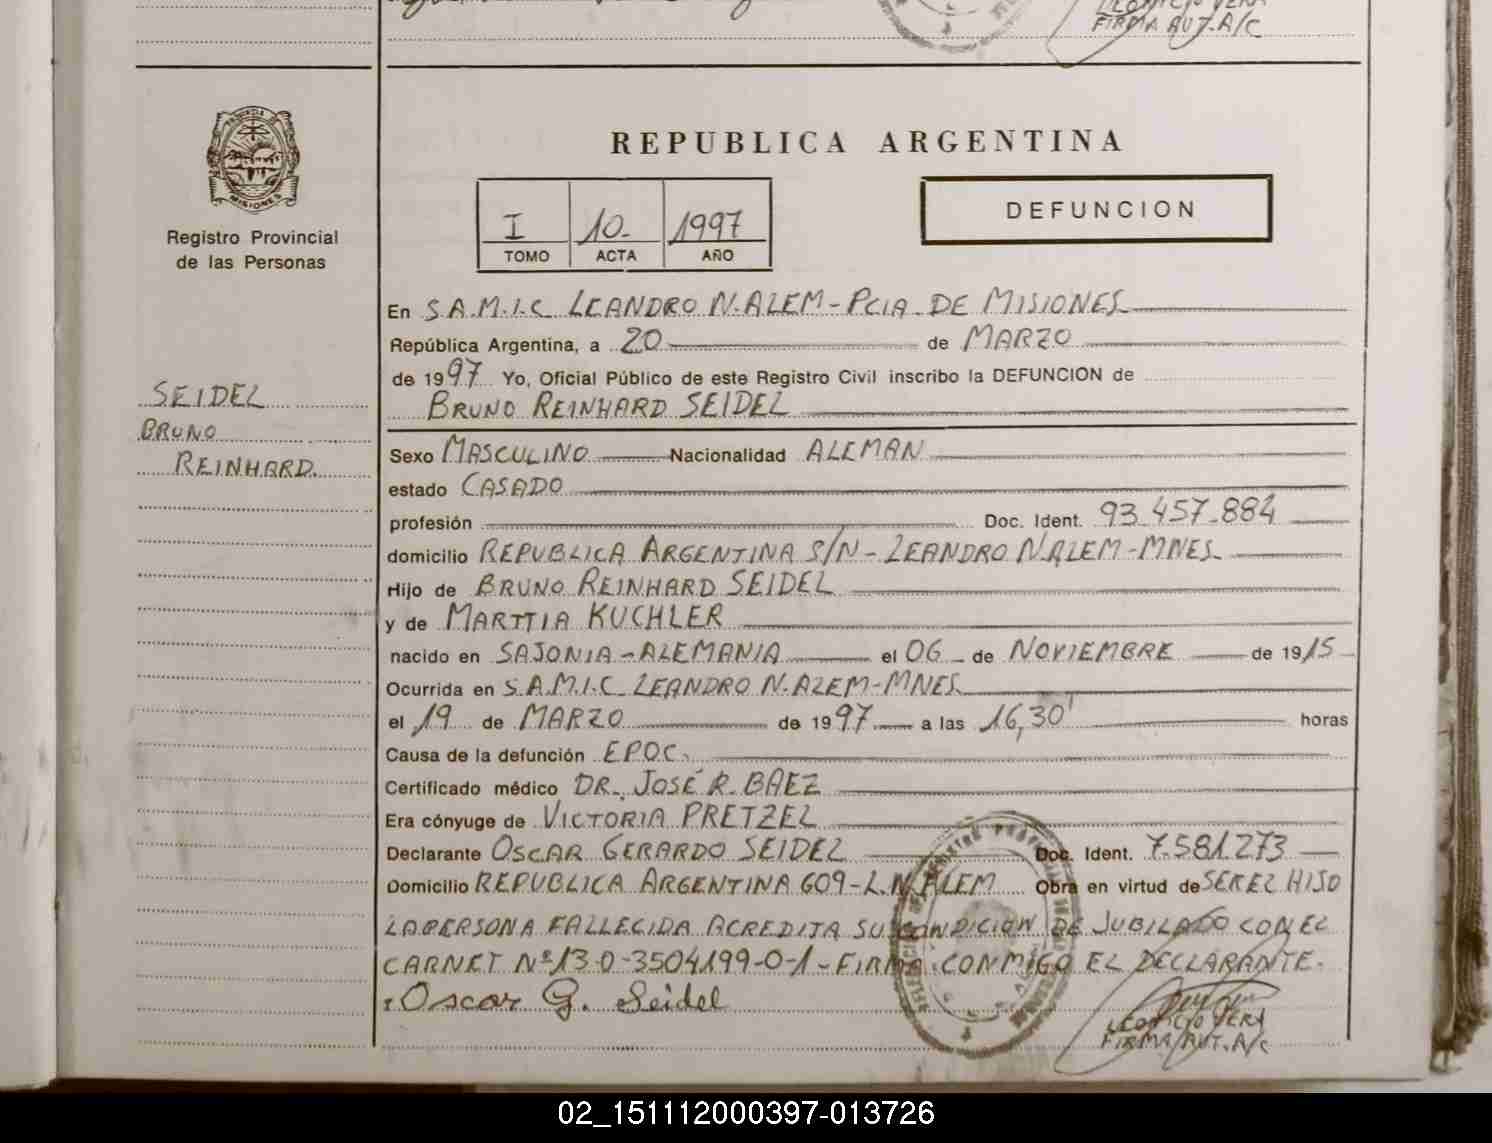 FIRMA AUT. A/C
PROVINCIA DE
MISIONES
Registro Provincial
de las Personas
REPUBLICA ARGENTINA
I 10- 1997
TOMO ACTA AÑO
DEFUNCION
En S.A.M.I.C LEANDRO N. ALEM - PCIA. DE MISIONES
República Argentina, a 20 de MARZO
de 1997 Yo, Oficial Público de este Registro Civil inscribo la DEFUNCION de
BRUNO REINHARD SEIDEL
SEIDEL
BRUNO
REINHARD.
Sexo MASCULINO Nacionalidad ALEMAN
estado CASADO
profesión Doc. Ident. 93.457.884
domicilio REPUBLICA ARGENTINA S/N - LEANDRO N ALEM - MNES
Hijo de BRUNO REINHARD SEIDEL
y de MARTTIA KUCHLER
nacido en SAJONIA - ALEMANIA el 06 de NOVIEMBRE de 1915
Ocurrida en S.A.M.I.C LEANDRO N. ALEM - MNES
el 19 de MARZO de 1997 a las 16,30' horas
Causa de la defunción EPOC.
Certificado médico DR. JOSÉ R. BAEZ
Era cónyuge de VICTORIA PRETZEL
Declarante OSCAR GERARDO SEIDEL Doc. Ident. 7.581.273
Domicilio REPUBLICA ARGENTINA 609 - L.N. ALEM Obra en virtud de SER EL HIJO
LA PERSONA FALLECIDA ACREDITA SU CONDICION DE JUBILADO CON EL
CARNET Nº 13-0-3504199-0-1 - FIRMA CONMIGO EL DECLARANTE.
Oscar G. Seidel
LEODICIO VERA
FIRMA AUT. A/C
02_151112000397-013726